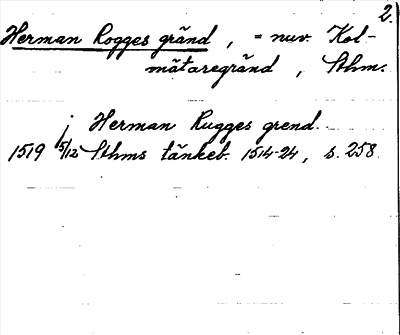 2.
Herman Rogges gränd, = nuv. Kol-
mätaregränd, Sthm.
j Herman Rugges grend.
1519 5/12 Sthms tänkeb. 1514-24, s. 258.